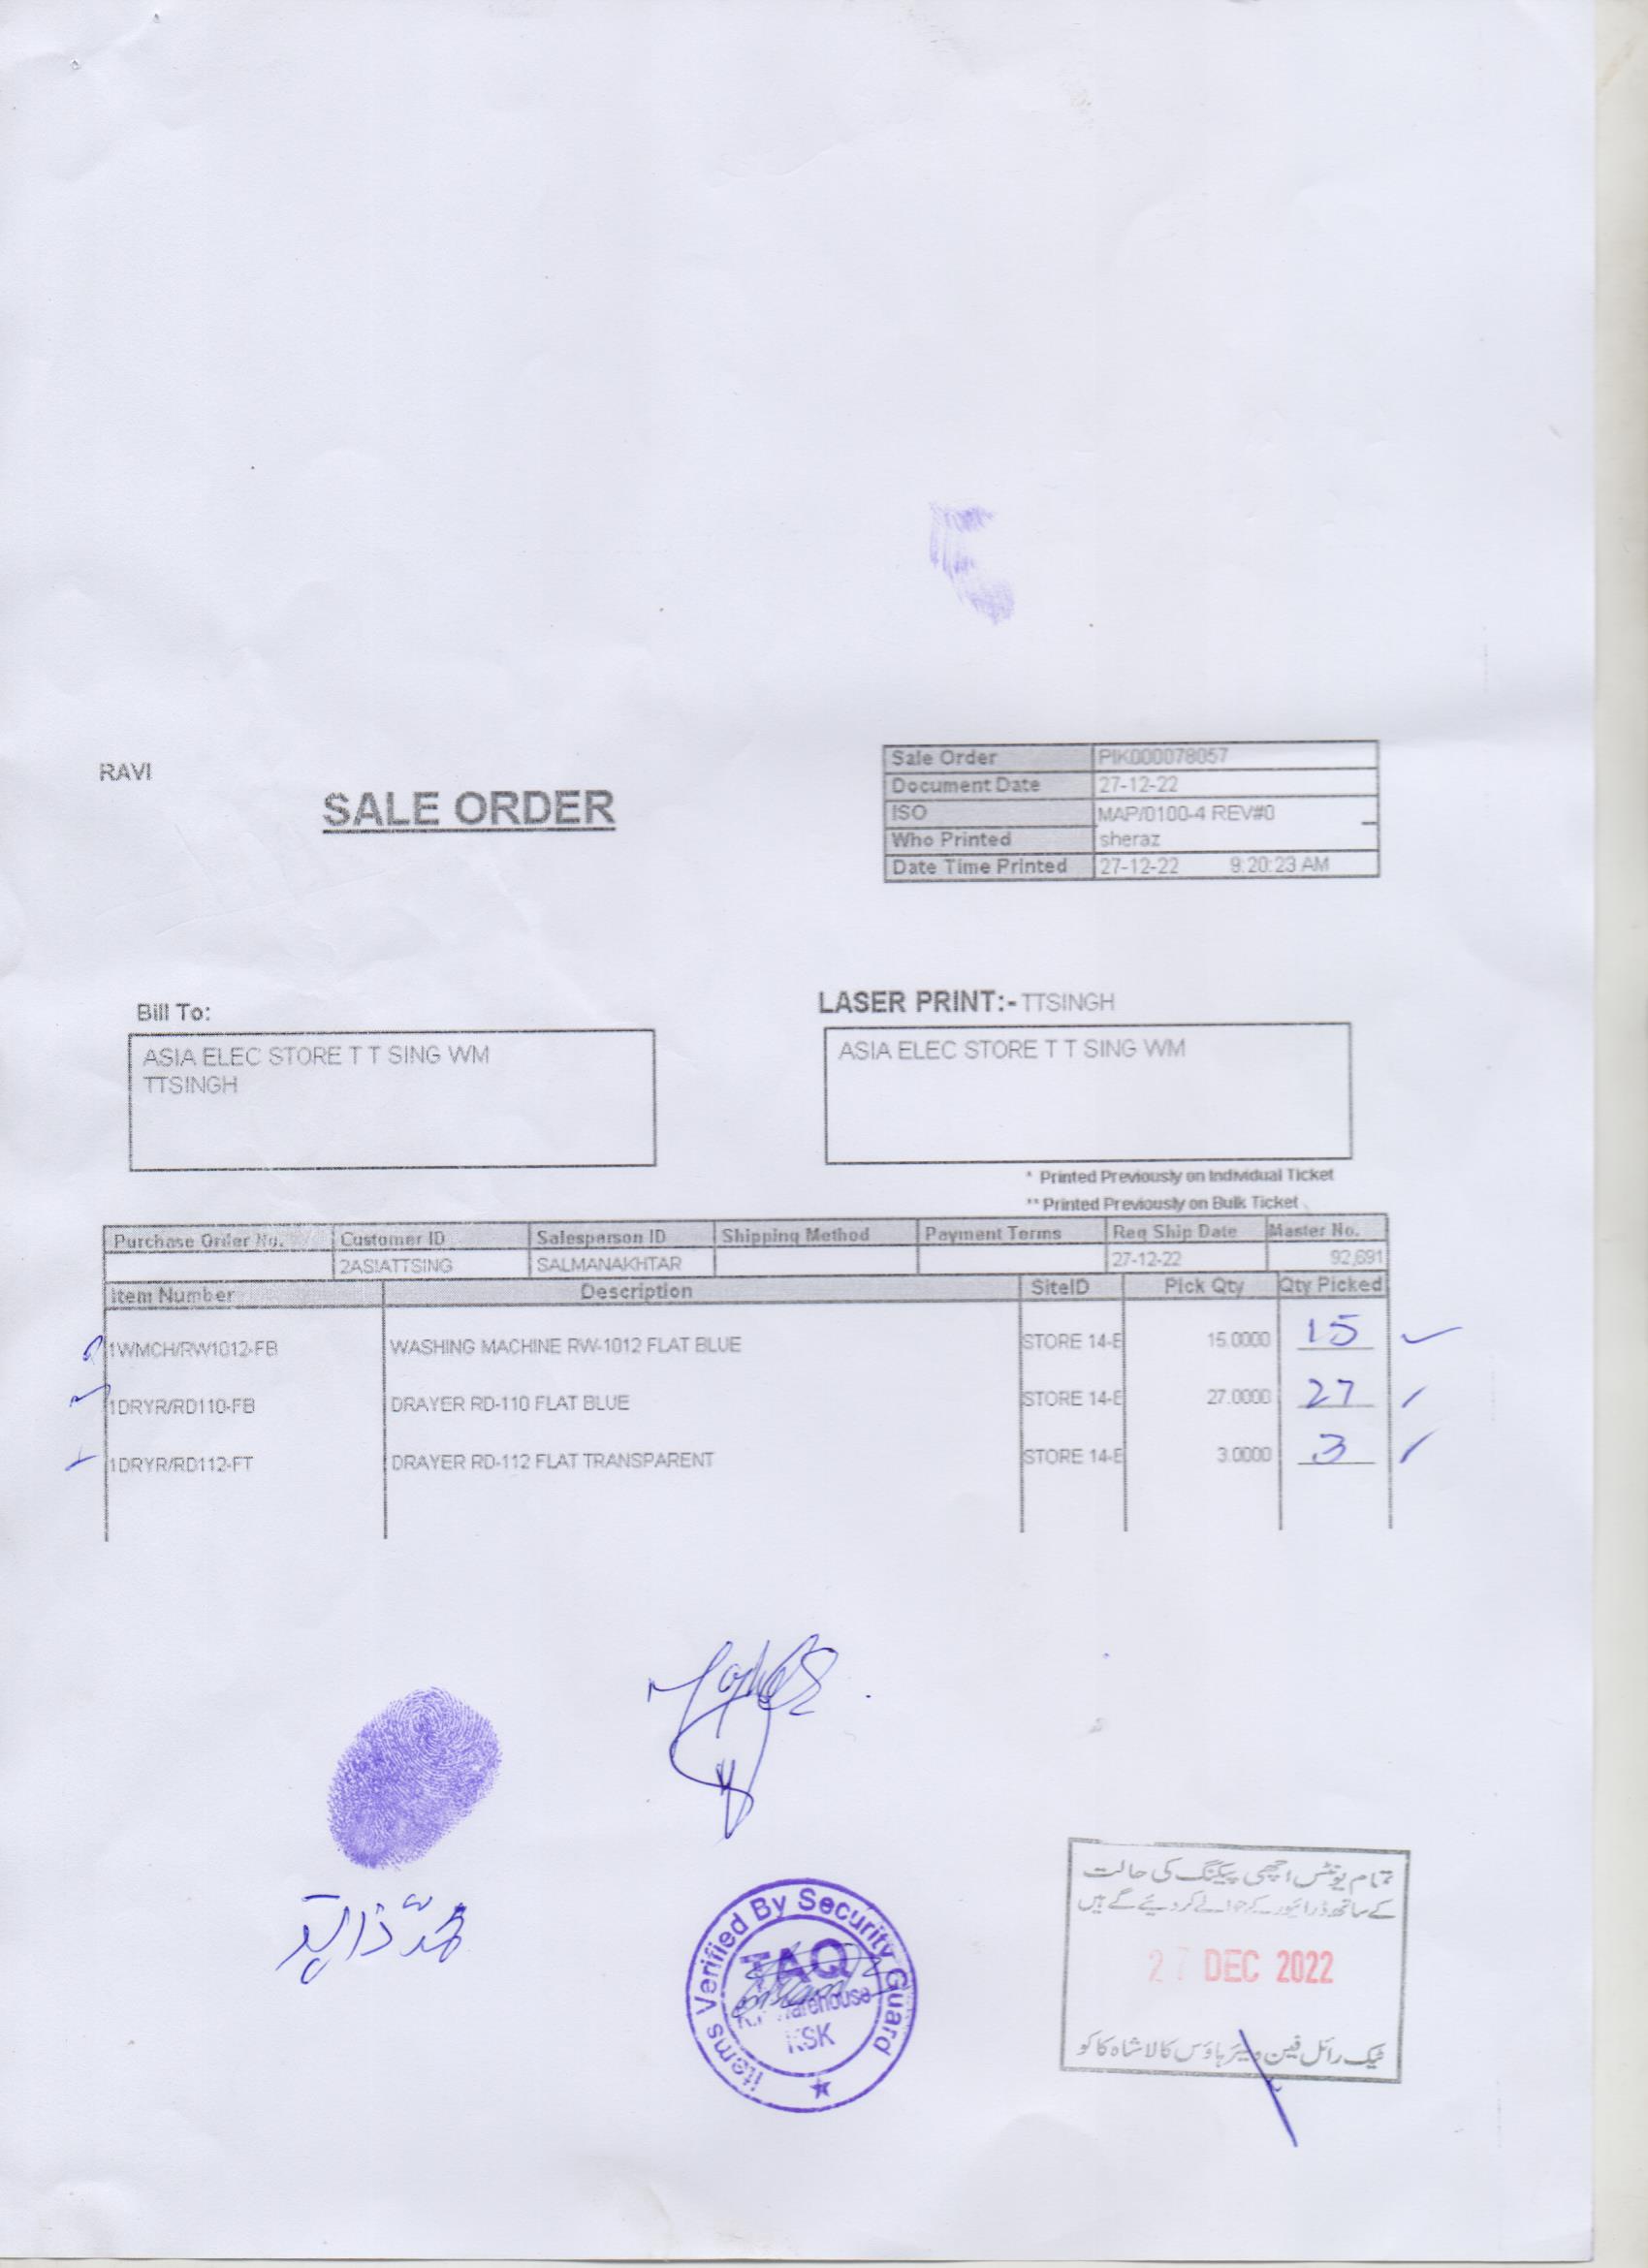 RAVI
SALE ORDER
Sale Order PIK000078057
Document Date 27-12-22
ISO MAP/0100-4 REV#0
Who Printed sheraz
Date Time Printed 27-12-22 9:20:23 AM
Bill To:
ASIA ELEC STORE T T SING WM
TTSINGH
LASER PRINT:- TTSINGH
ASIA ELEC STORE T T SING WM
* Printed Previously on Individual Ticket
** Printed Previously on Bulk Ticket
Purchase Order No. Customer ID Salesperson ID Shipping Method Payment Terms Req Ship Date Master No.
2ASIATTSING SALMANAKHTAR 27-12-22 92,691
Item Number Description SiteID Pick Qty Qty Picked
1WMCH/RW1012-FB WASHING MACHINE RW-1012 FLAT BLUE STORE 14-E 15.0000 15
1DRYR/RD110-FB DRAYER RD-110 FLAT BLUE STORE 14-E 27.0000 27
1DRYR/RD112-FT DRAYER RD-112 FLAT TRANSPARENT STORE 14-E 3.0000 3
Items Verified By Security Guard
TAQ
Warehouse
KSK
تمام یونٹس اچھی پیکنگ کی حالت
کے ساتھ ڈرائیور کے حوالے کر دیئے گے ہیں
27 DEC 2022
ٹیک رائل فین ویئر ہاؤس کالا شاہ کاکو